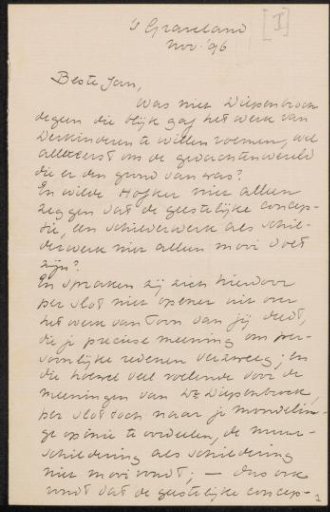 's Graveland [I]
Nov. '96
Beste Jan,
Was niet Diepenbrock
degeen die blijk gaf het werk van
Derkinderen te willen roemen, wel
allereerst om de gedachtenwereld
die er den grond van was?
En wilde Hofker niet alleen
zeggen dat de geestelijke concep-
tie, een schilderwerk als schil-
derwerk niet alleen mooi doet
zijn?
En spraken zij zich hierdoor
per slot niet opener uit over
het werk van Toon dan jij deedt,
die je preciese meening om per-
soonlijke redenen verzweeg; en
die hoewel veel voelende voor de
meeningen van Dr Diepenbrock,
per slot toch naar je mondelin-
ge opinie te oordeelen, de muur-
schildering als schildering
niet mooi vondt; — dus ook
vondt dat de geestelijke concep-